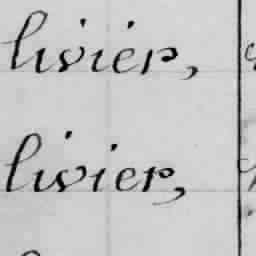 livier,
livier,